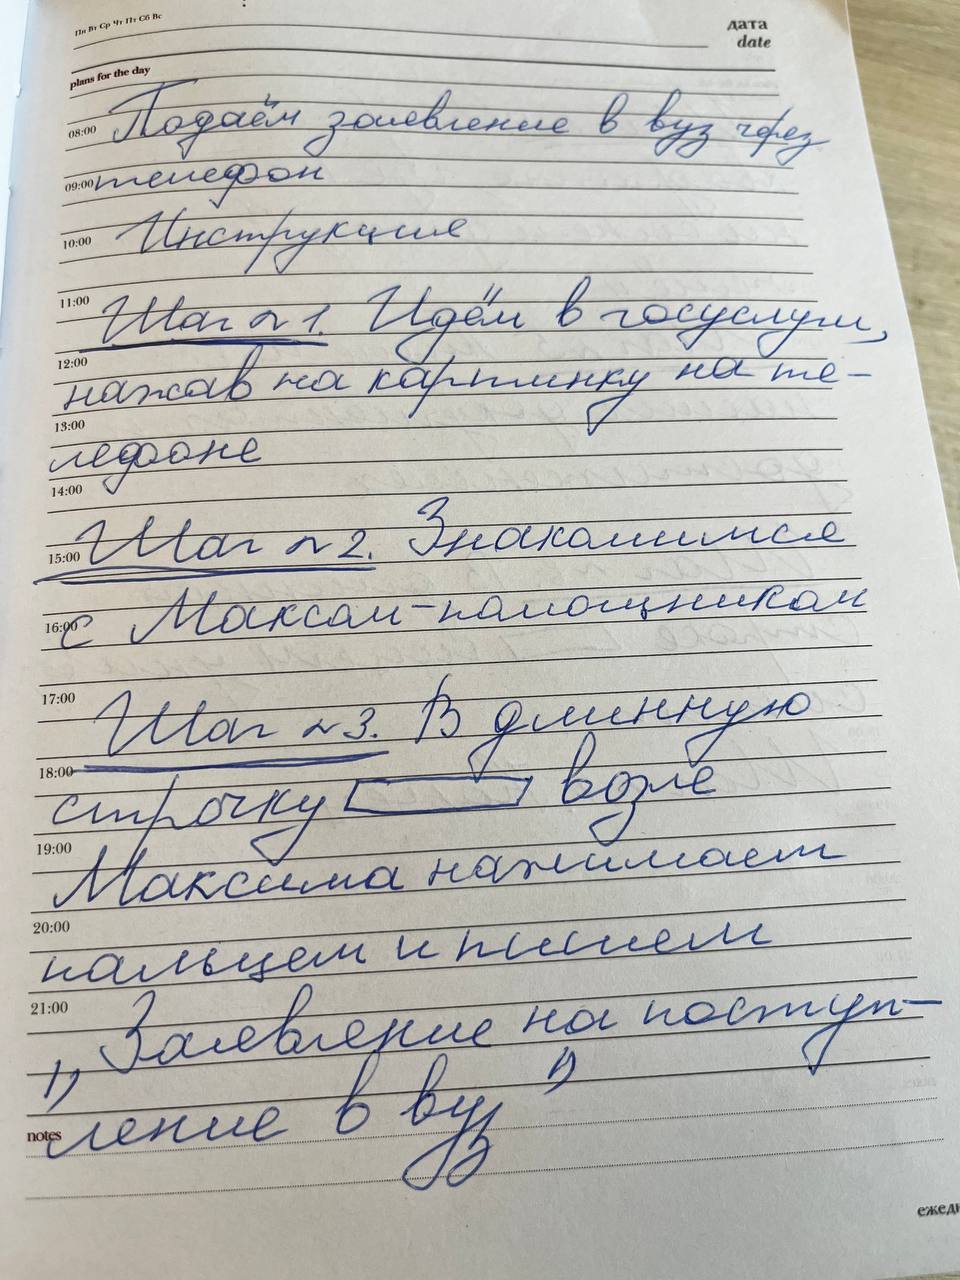 Пн Вт Ср Чт Пт Сб Вс
дата
date
plans for the day
08:00 Подаём заявление в вуз через
09:00 телефон
10:00 Инструкция
11:00
Шаг №1. Идём в госуслуги,
12:00
нажав на картинку на те-
13:00
лефоне
14:00
15:00 Шаг №2. Знакомимся
16:00 с Максом-помощником
17:00
Шаг №3. В длинную
18:00
строчку возле
19:00
Максима нажимаем
20:00
пальцем и пишем
21:00
„Заявление на поступ-
notes ление в вуз"
ежедн